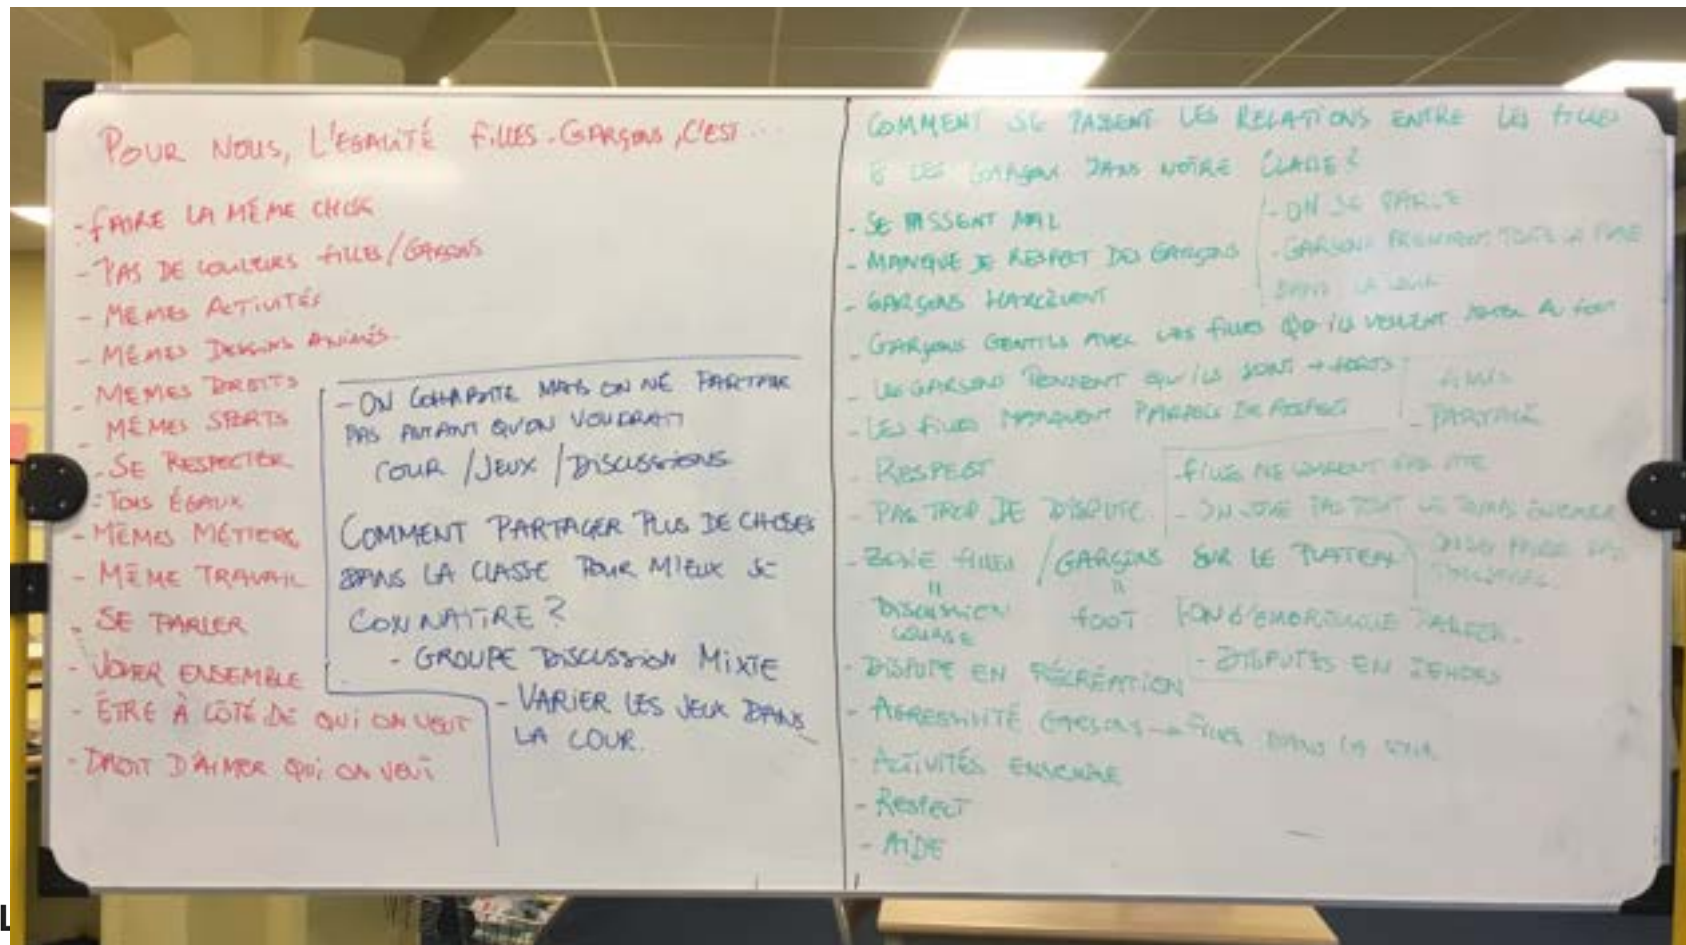 POUR NOUS, L'ÉGALITÉ FILLES-GARÇONS, C'EST...
- FAIRE LA MÊME CHOSE
- PAS DE COULEURS FILLES/GARÇONS
- MÊMES ACTIVITÉS
- MÊMES DESSINS ANIMÉS
- MÊMES DROITS
- MÊMES SPORTS
- SE RESPECTER
- TOUS ÉGAUX
- MÊMES MÉTIERS
- MÊME TRAVAIL
- SE PARLER
- JOUER ENSEMBLE
- ÊTRE À CÔTÉ DE QUI ON VEUT
- DROIT D'AIMER QUI ON VEUT
- ON COHABITE MAIS ON NE PARTAGE
PAS AUTANT QU'ON VOUDRAIT
COUR / JEUX / DISCUSSIONS
COMMENT PARTAGER PLUS DE CHOSES
DANS LA CLASSE POUR MIEUX SE
CONNAITRE ?
- GROUPE DISCUSSION MIXTE
- VARIER LES JEUX DANS
LA COUR.
COMMENT SE PASSENT LES RELATIONS ENTRE LES FILLES
& LES GARÇONS DANS NOTRE CLASSE ?
- SE PASSENT MAL
- MANQUE DE RESPECT DES GARÇONS
- GARÇONS HARCÈLENT
- GARÇONS GENTILS AVEC LES FILLES QD ILS VEULENT JOUER AU FOOT
- LES GARÇONS PENSENT QU'ILS SONT + FORTS
- LES FILLES MANQUENT PARFOIS DE RESPECT
- RESPECT
- PAS TROP DE DISPUTE
- ZONE FILLES / GARÇONS SUR LE PLATEAU
= =
DISCUSSION FOOT
COURSE
- DISPUTE EN RÉCRÉATION
- AGRESSIVITÉ GARÇONS → FILLES DANS LA COUR
- ACTIVITÉS ENSEMBLE
- RESPECT
- AIDE
- ON SE PARLE
- GARÇONS PRENNENT TOUTE LA PLACE
DANS LA COUR
AMIS
- PARTAGE
- FILLES NE COURENT PAS VITE
- ON JOUE PAS TOUT LE TEMPS ENSEMBLE
- DISPUTES EN DEHORS
L